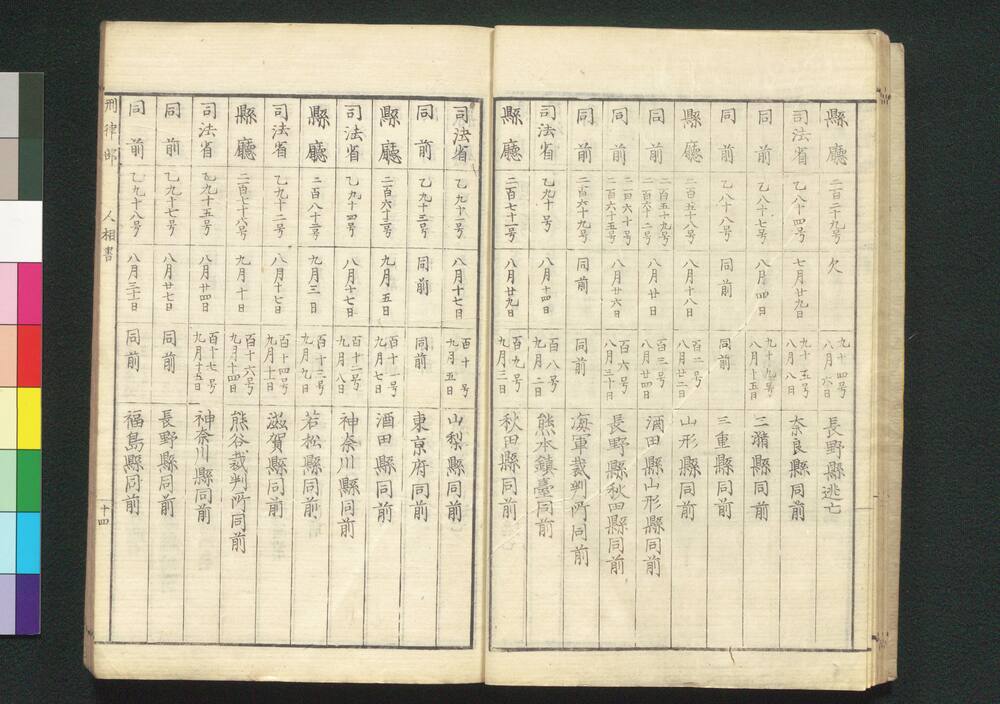 縣廳 二百二十九号 欠 九十四号 八月六日 長野縣逃亡
司法省 乙八十四号 七月廿九日 九十五号 八月八日 奈良縣同前
同前 乙八十七号 八月四日 九十九号 八月十五日 三潴縣同前
同前 乙八十八号 同前 同前 三重縣同前
縣廳 二百五十八号 八月十八日 百二号 八月廿二日 山形縣同前
同前 二百五十九号 二百六十二号 八月廿日 百三号 八月廿四日 酒田縣山形縣同前
同前 二百六十号 二百六十五号 八月廿六日 百六号 八月三十日 長野縣秋田縣同前
同前 二百六十九号 同前 同前 海軍裁判所同前
司法省 乙九十号 八月十四日 百八号 九月二日 熊本鎮臺同前
縣廳 二百七十一号 八月廿九日 百九号 九月三日 秋田縣同前
司法省 乙九十一号 八月十七日 百十号 九月五日 山梨縣同前
同前 乙九十三号 同前 同前 東亰府同前
縣廳 二百六十三号 九月五日 百十一号 九月七日 酒田縣同前
司法省 乙九十四号 八月十七日 百十二号 九月八日 神奈川縣同前
縣廳 二百八十三号 九月三日 百十三号 九月九日 若松縣同前
司法省 乙九十二号 八月十七日 百十四号 九月十一日 滋賀縣同前
縣廳 二百七十八号 九月十日 百十六号 九月十四日 熊谷裁判所同前
司法省 乙九十五号 八月廿四日 百十七号 九月十五日 神奈川縣同前
同前 乙九十七号 八月廿七日 同前 長野縣同前
同前 乙九十八号 八月三十一日 同前 福島縣同前
刑律部 人相書 十四